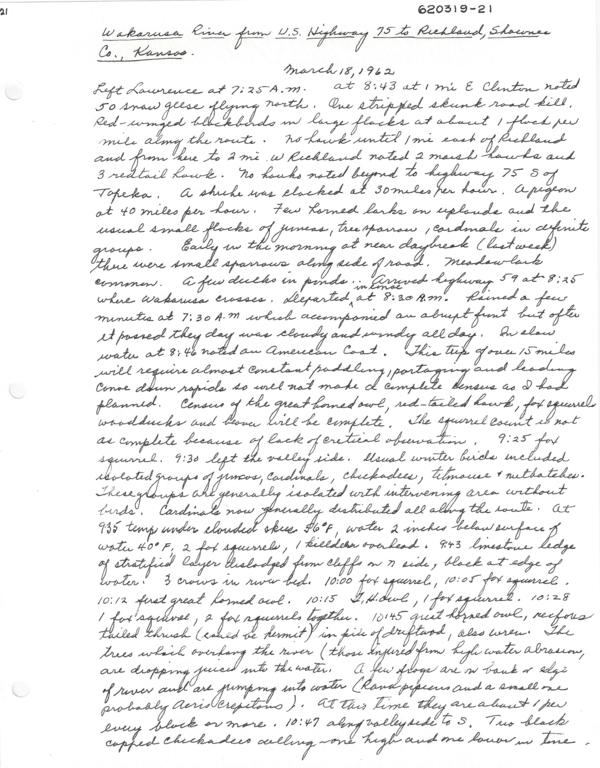 21
620319-21
Wakarusa River from U.S. Highway 75 to Richland, Shawnee
Co., Kansas.
March 18, 1962
Left Lawrence at 7:25 A.M. at 8:43 at 1 mi E Clinton noted
50 snow geese flying north. One stripped skunk road kill.
Red-winged blackbirds in large flocks at about 1 flock per
mile along the route. No hawk until 1 mi east of Richland
and from here to 2 mi. W Richland noted 2 marsh hawks and
3 redtail hawk. No hawks noted beyond to highway 75 S of
Topeka. A shrike was clocked at 30 miles per hour. A pigeon
at 40 miles per hour. Few horned larks on uplands and the
usual small flocks of juncos, tree sparrow, cardinals in definite
groups. Early in the morning at near daybreak (last week)
there were small sparrows along side of road. Meadowlark
common. A few ducks in ponds. Arrived highway 59 at 8:25
where Wakarusa crosses. Departed in canoe at 8:30 A.M. Rained a few
minutes at 7:30 A.M which accompanied an abrupt front but after
it passed they day was cloudy and windy all day. In slow
water at 8:46 noted an American Coot. This trip of over 15 miles
will require almost constant paddling, portaging and leading
canoe down rapids so will not make a complete census as I had
planned. Census of the great horned owl, red-tailed hawk, fox squirrels
woodducks and beaver will be complete. The squirrel count is not
as complete because of lack of critical observation. 9:25 fox
squirrel. 9:30 left the valley side. Usual winter birds included
isolated groups of juncos, cardinals, chickadees, titmouse + nuthatches.
These groups are generally isolated with intervening area without
birds. Cardinals now generally distributed all along the route. At
935 temp under clouded skies 56°F, water 2 inches below surface of
water 40°F, 2 fox squirrels, 1 killdeer overhead. 943 limestone ledge
of stratified layer dislodged from cliffs on n side, block at edge of
water. 3 crows in river bed. 10:00 fox squirrel, 10:05 fox squirrel.
10:12 first great horned owl. 10:15 G.H. owl, 1 fox squirrel. 10:28
1 fox squirrel, 2 fox squirrels together. 10:45 great horned owl, rufous
tailed thrush (could be hermit) in pile of driftwood, also wren. The
trees which overhang the river (those injured from high water abrasion,
are dropping juices into the water. A few frogs are on bank or edge
of river and are jumping into water (Rana pipiens and a small one
probably Acris crepitans). At this time they are about 1 per
every block or more. 10:47 along valley side to S. Two black
capped chickadees calling - one high and one lower in tone.